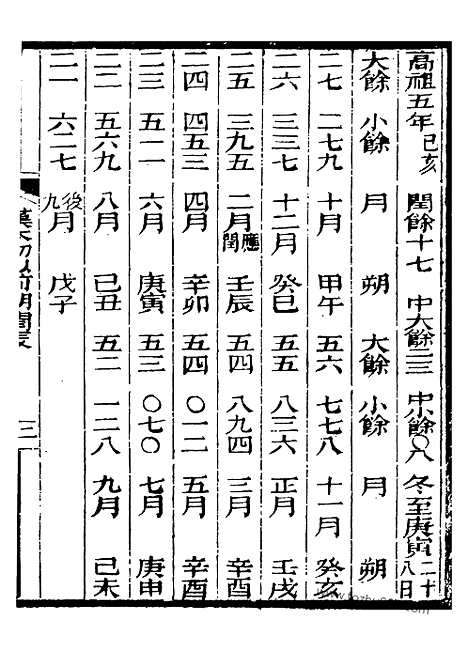 高祖五年己亥 閏餘十七 中大餘二三 中小餘〇八 冬至庚寅二十八日
大餘 小餘 月 朔 大餘 小餘 月 朔
二七 二七九 十月 甲午 五六 七七八 十一月 癸亥
二六 三三七 十二月 癸巳 五五 八三六 正月 壬戌
二五 三九五 二月應閏 壬辰 五四 八九四 三月 辛酉
二四 四五三 四月 辛卯 五四 〇一二 五月 辛酉
二三 五一一 六月 庚寅 五三 〇七〇 七月 庚申
二二 五六九 八月 己丑 五二 一二八 九月 己未
二一 六二七 後九月 戊子
三